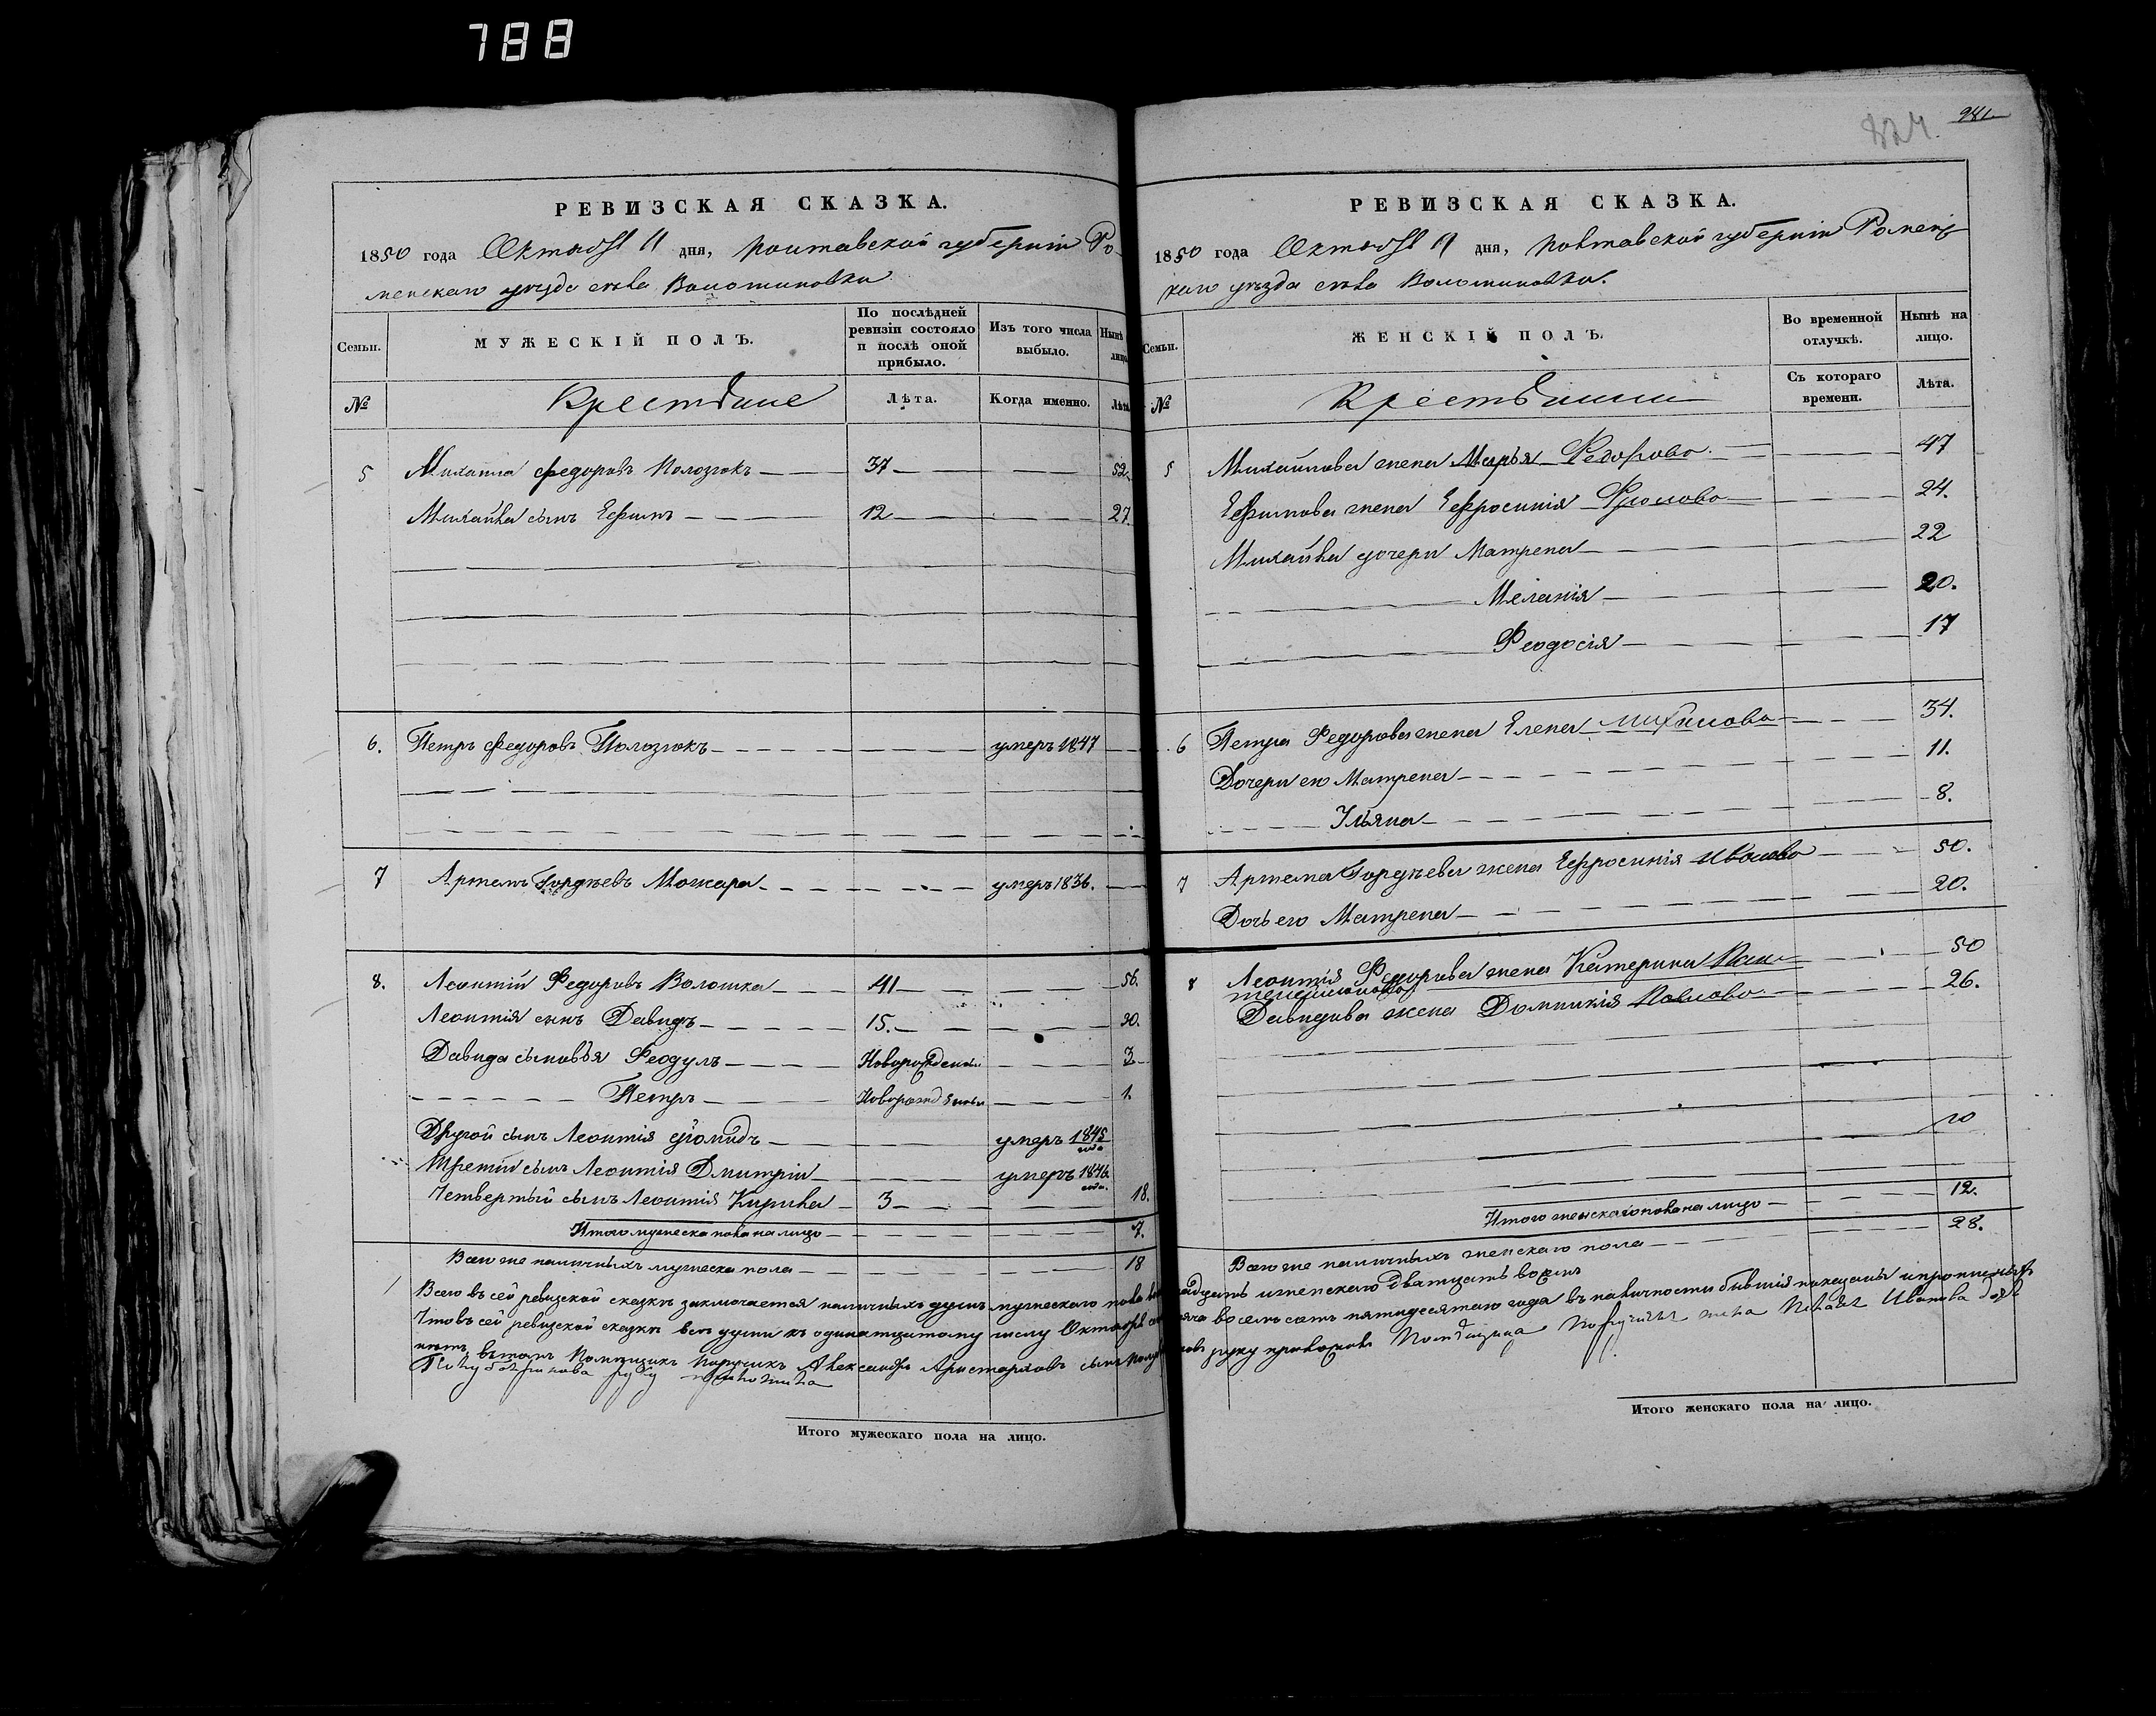 788
РЕВИЗСКАЯ СКАЗКА.
1850 года Октября 11 дня, Полтавской губерніи Ро-
менскаго уѣзда села Волошиновки
Семьи.
МУЖЕСКІЙ ПОЛЪ.
По послѣдней ревизіи состояло и послѣ оной прибыло.
Изъ того числа выбыло.
Нынѣ лицо
№
Крестьяне
Лѣта.
Когда именно.
Лѣта
5 Михаила Федоровъ Полозюкъ 37 52.
Михайла сынъ Ефимъ 12 27.
6. Петръ Федоровъ Полозюкъ умеръ 1847
7 Артемъ ГордѣевъМожара умеръ 1836.
8. Леонтій Федоровъ Волошка 41 56.
Леонтія сынъ Давидъ 15. 30.
Давида сыновья Феодулъ Новорожденный 3
Петръ Новорожденный 1.
Другой сынъ Леонтія Діомидъ умеръ 1845 года
Третій сынъ Леонтія Дмитрій умеръ 1846 года.
Четвертый сынъ Леонтія Кирила 3 18.
Итого мужеска пола на лицо 7.
Всего же наличныхъ мужеска пола 18
Итого мужескаго пола на лицо.
824.
981
РЕВИЗСКАЯ СКАЗКА.
1850 года Октября 11 дня, Полтавской губерніи Роменс
каго уѣзда села Волошиновки.
Семьи.
ЖЕНСКІЙ ПОЛЪ.
Во временной отлучкѣ.
Нынѣ на лицо.
№
Крестьянки
Съ котораго времени.
Лѣта.
5 Михайлова жена Марья Федорова 47
Ефимова жена Ефросинія 24.
Михайла дочери Матрена 22
Меланія 20.
Феодосія 17
6 Петра Федорова жена Елена 34.
Дочери его Матрена 11.
Ульяна 8.
7 Артема Гордѣева жена Ефросинія Иванова 50.
Дочь его Матрена 20.
8 Леонтія Федорова жена Катерина 50
Давидова жена Домникія Павлова 26.
Итого женскаго пола на лицо 12.
Всего же наличныхъ женскаго пола 28.
Всего въ сей ревизской сказкѣ заключается наличныхъ душъ мужескаго пола и женскаго двадцать восемь
Что въ сей ревизской сказкѣ всѣ души къ одинадцатому числу Октября восемь сотъ пятидесятаго года въ наличности бывшія показаны и прописныхъ
нѣтъ, въ томъ Помѣщикъ Поручикъ Александръ Аристарховъ сынъ руку приложилъ Помѣщица
руку приложила
Итого женскаго пола на лицо.